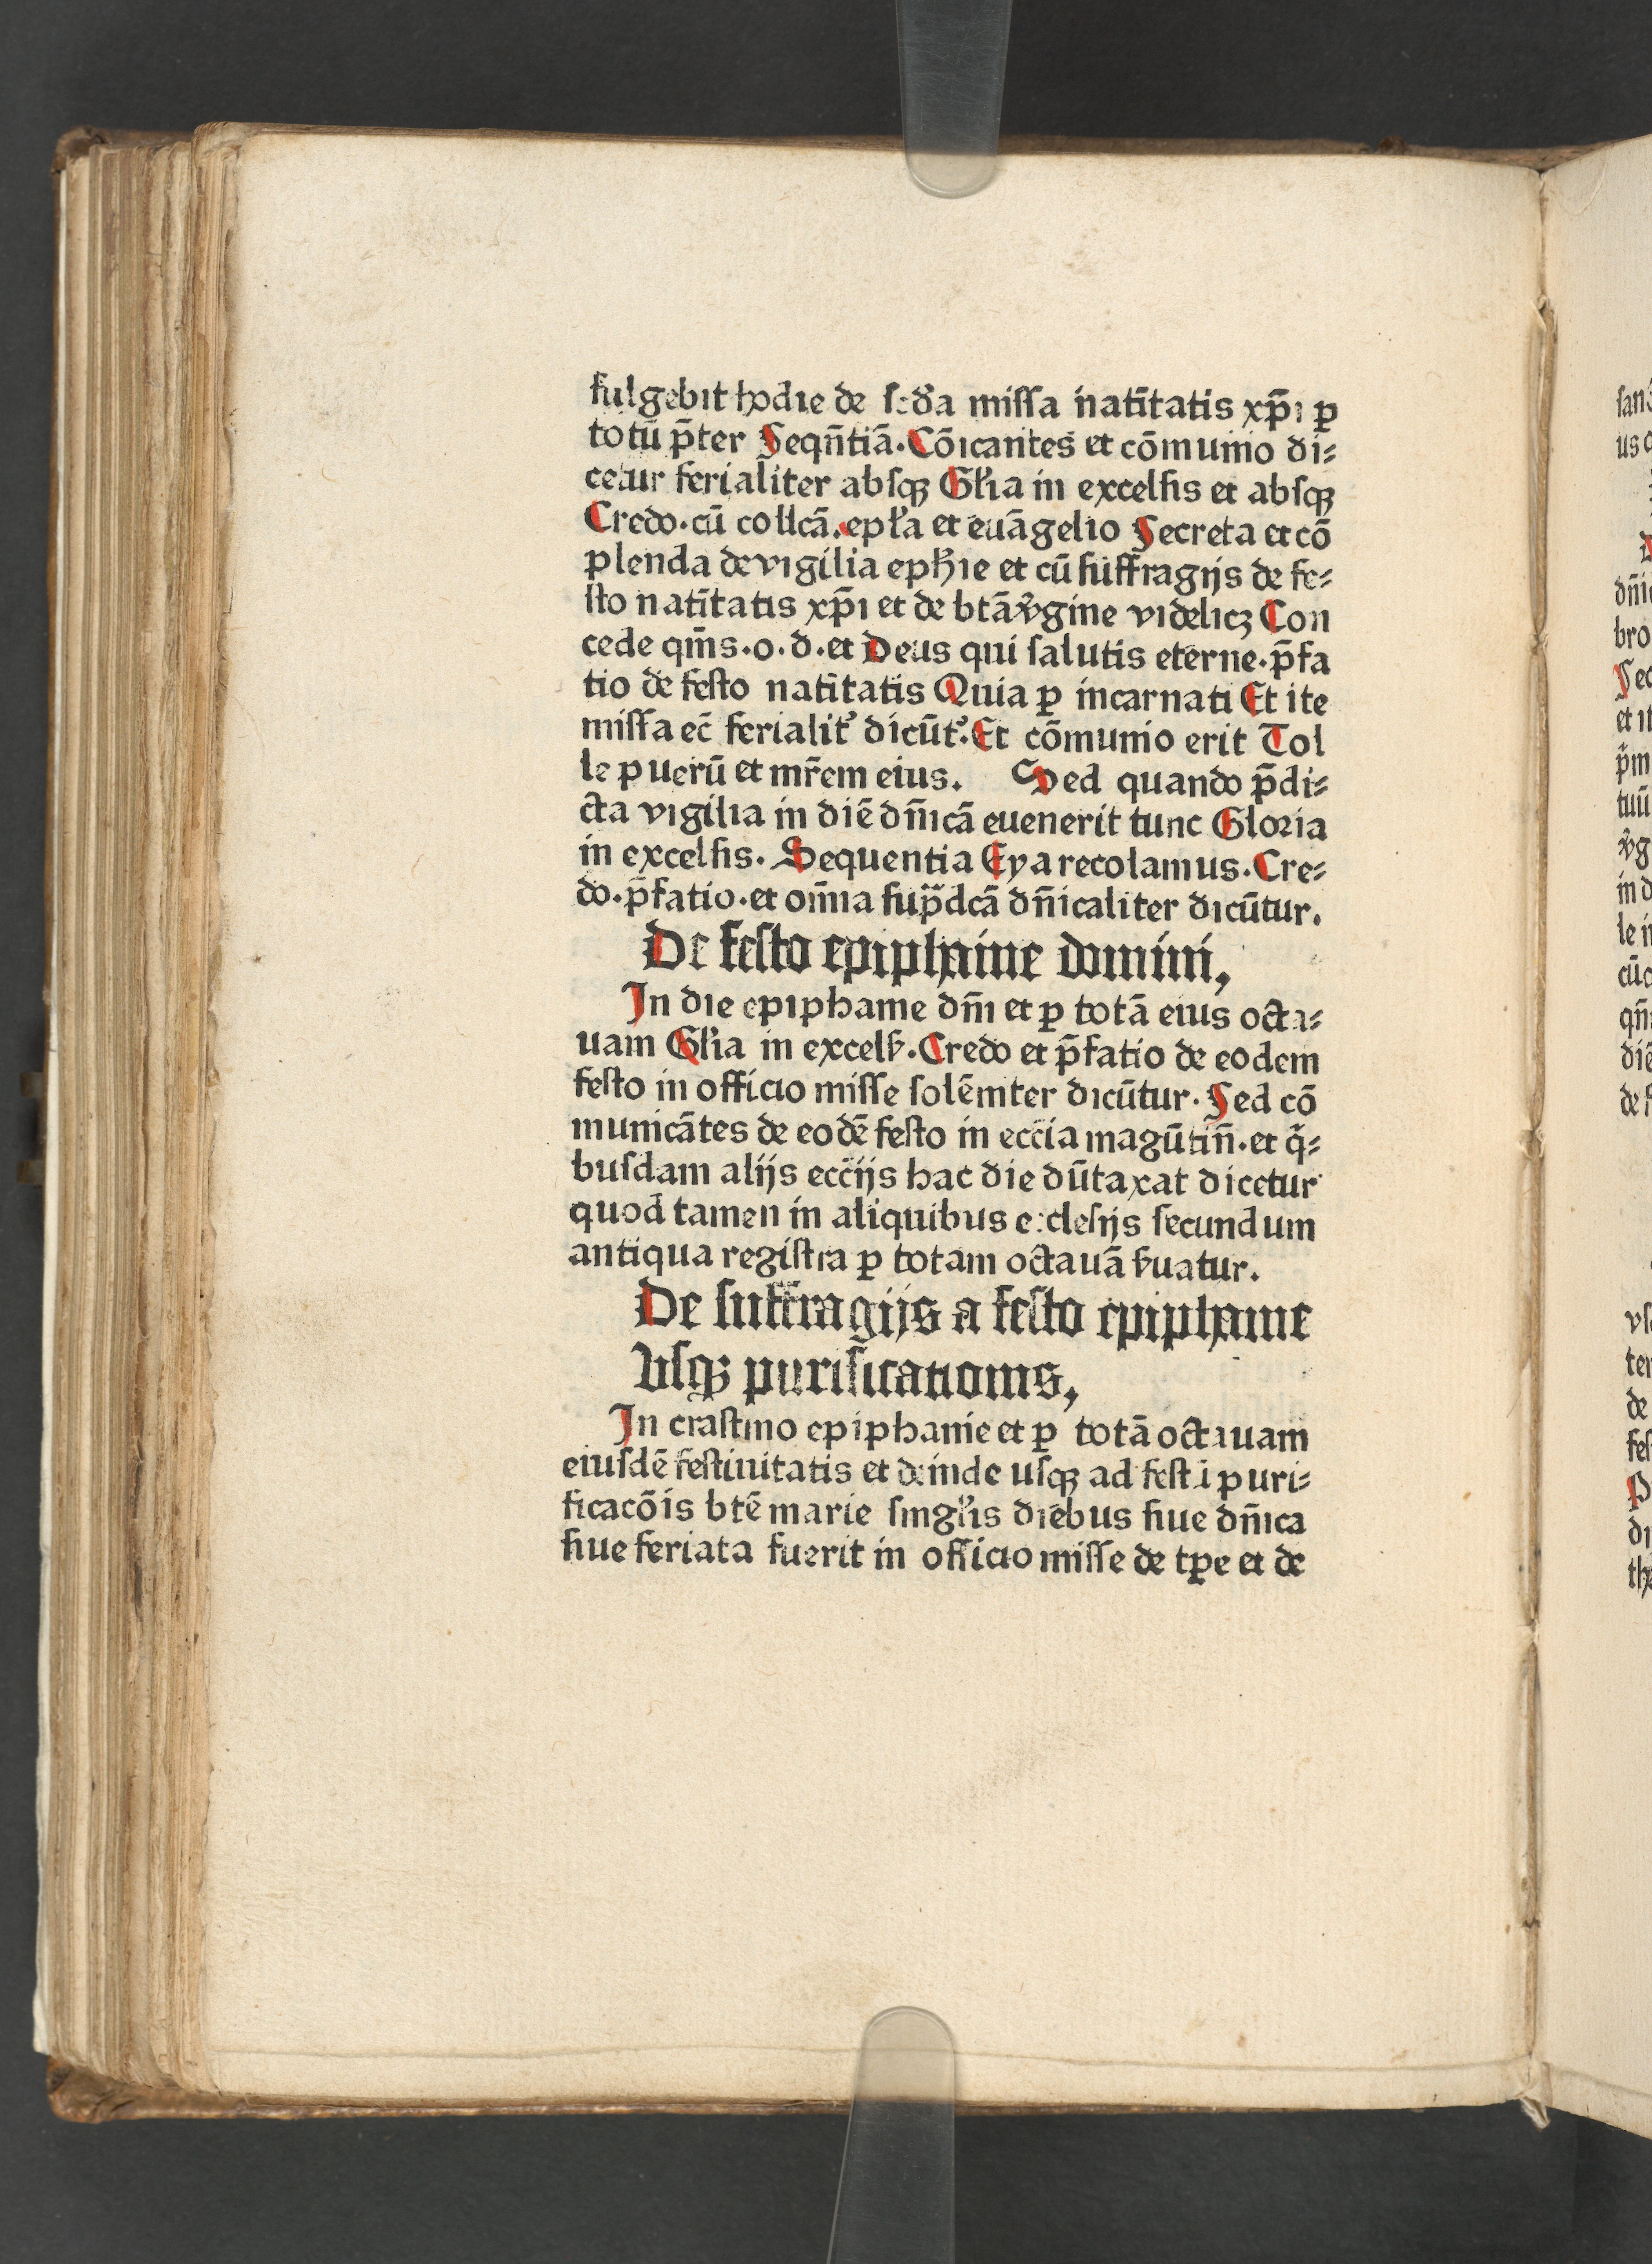 fulgebit hodie de scďa missa natītatis xp̄i ꝑ
totū p̄ter Seqn̄tiā. Cōicantes et cōmunio di⸗
cetur ferialiter absqꝫ Gl'ia in excelsis et absqꝫ
Credo. cū collcā. epl'a et euāgelio Secreta et cō
plenda de vigilia eph'ie et cū suffragijs de fe⸗
sto natītatis xp̄i et de btā v̾gine videlicꝫ Con
cede qm̄s. o. d. et Deus qui salutis eterne. p̄fa
tio de festo natītatis Quia ꝑ incarnati Et ite
missa ec̄ ferialit̾ dicūt̾. Et cōmunio erit Tol
le puerū et mr̄em eius. Sed quando p̄di⸗
cta vigilia in diē dn̄icā euenerit tunc Gloria
in excelsis. Sequentia Eya recolamus. Cre⸗
do. p̄fatio. et om̄ia sup̄dcā dn̄icaliter dicūtur.
De festo epiphanie domini,
In die epiphanie dn̄i et ꝑ totā eius octa⸗
uam Gl'ia in excels̾. Credo et p̄fatio de eodem
festo in officio misse solēniter dicūtur. Sed cō
municātes de eodē festo in eccīa magūtin̄. et q̄⸗
busdam alijs eccījs hac die dūtaxat dicetur
quod tamen in aliquibus ecclesijs secundum
antiqua registra ꝑ totam octauā s̾uatur.
De suffragijs a festo epiphanie
vsqꝫ purificationis,
In crastino epiphanie et ꝑ totā octauam
eiusdē festiuitatis et deinde usqꝫ ad festū puri⸗
ficacōis btē marie singl'is diebus siue dn̄ica
siue feriata fuerit in officio misse de tꝑe et de